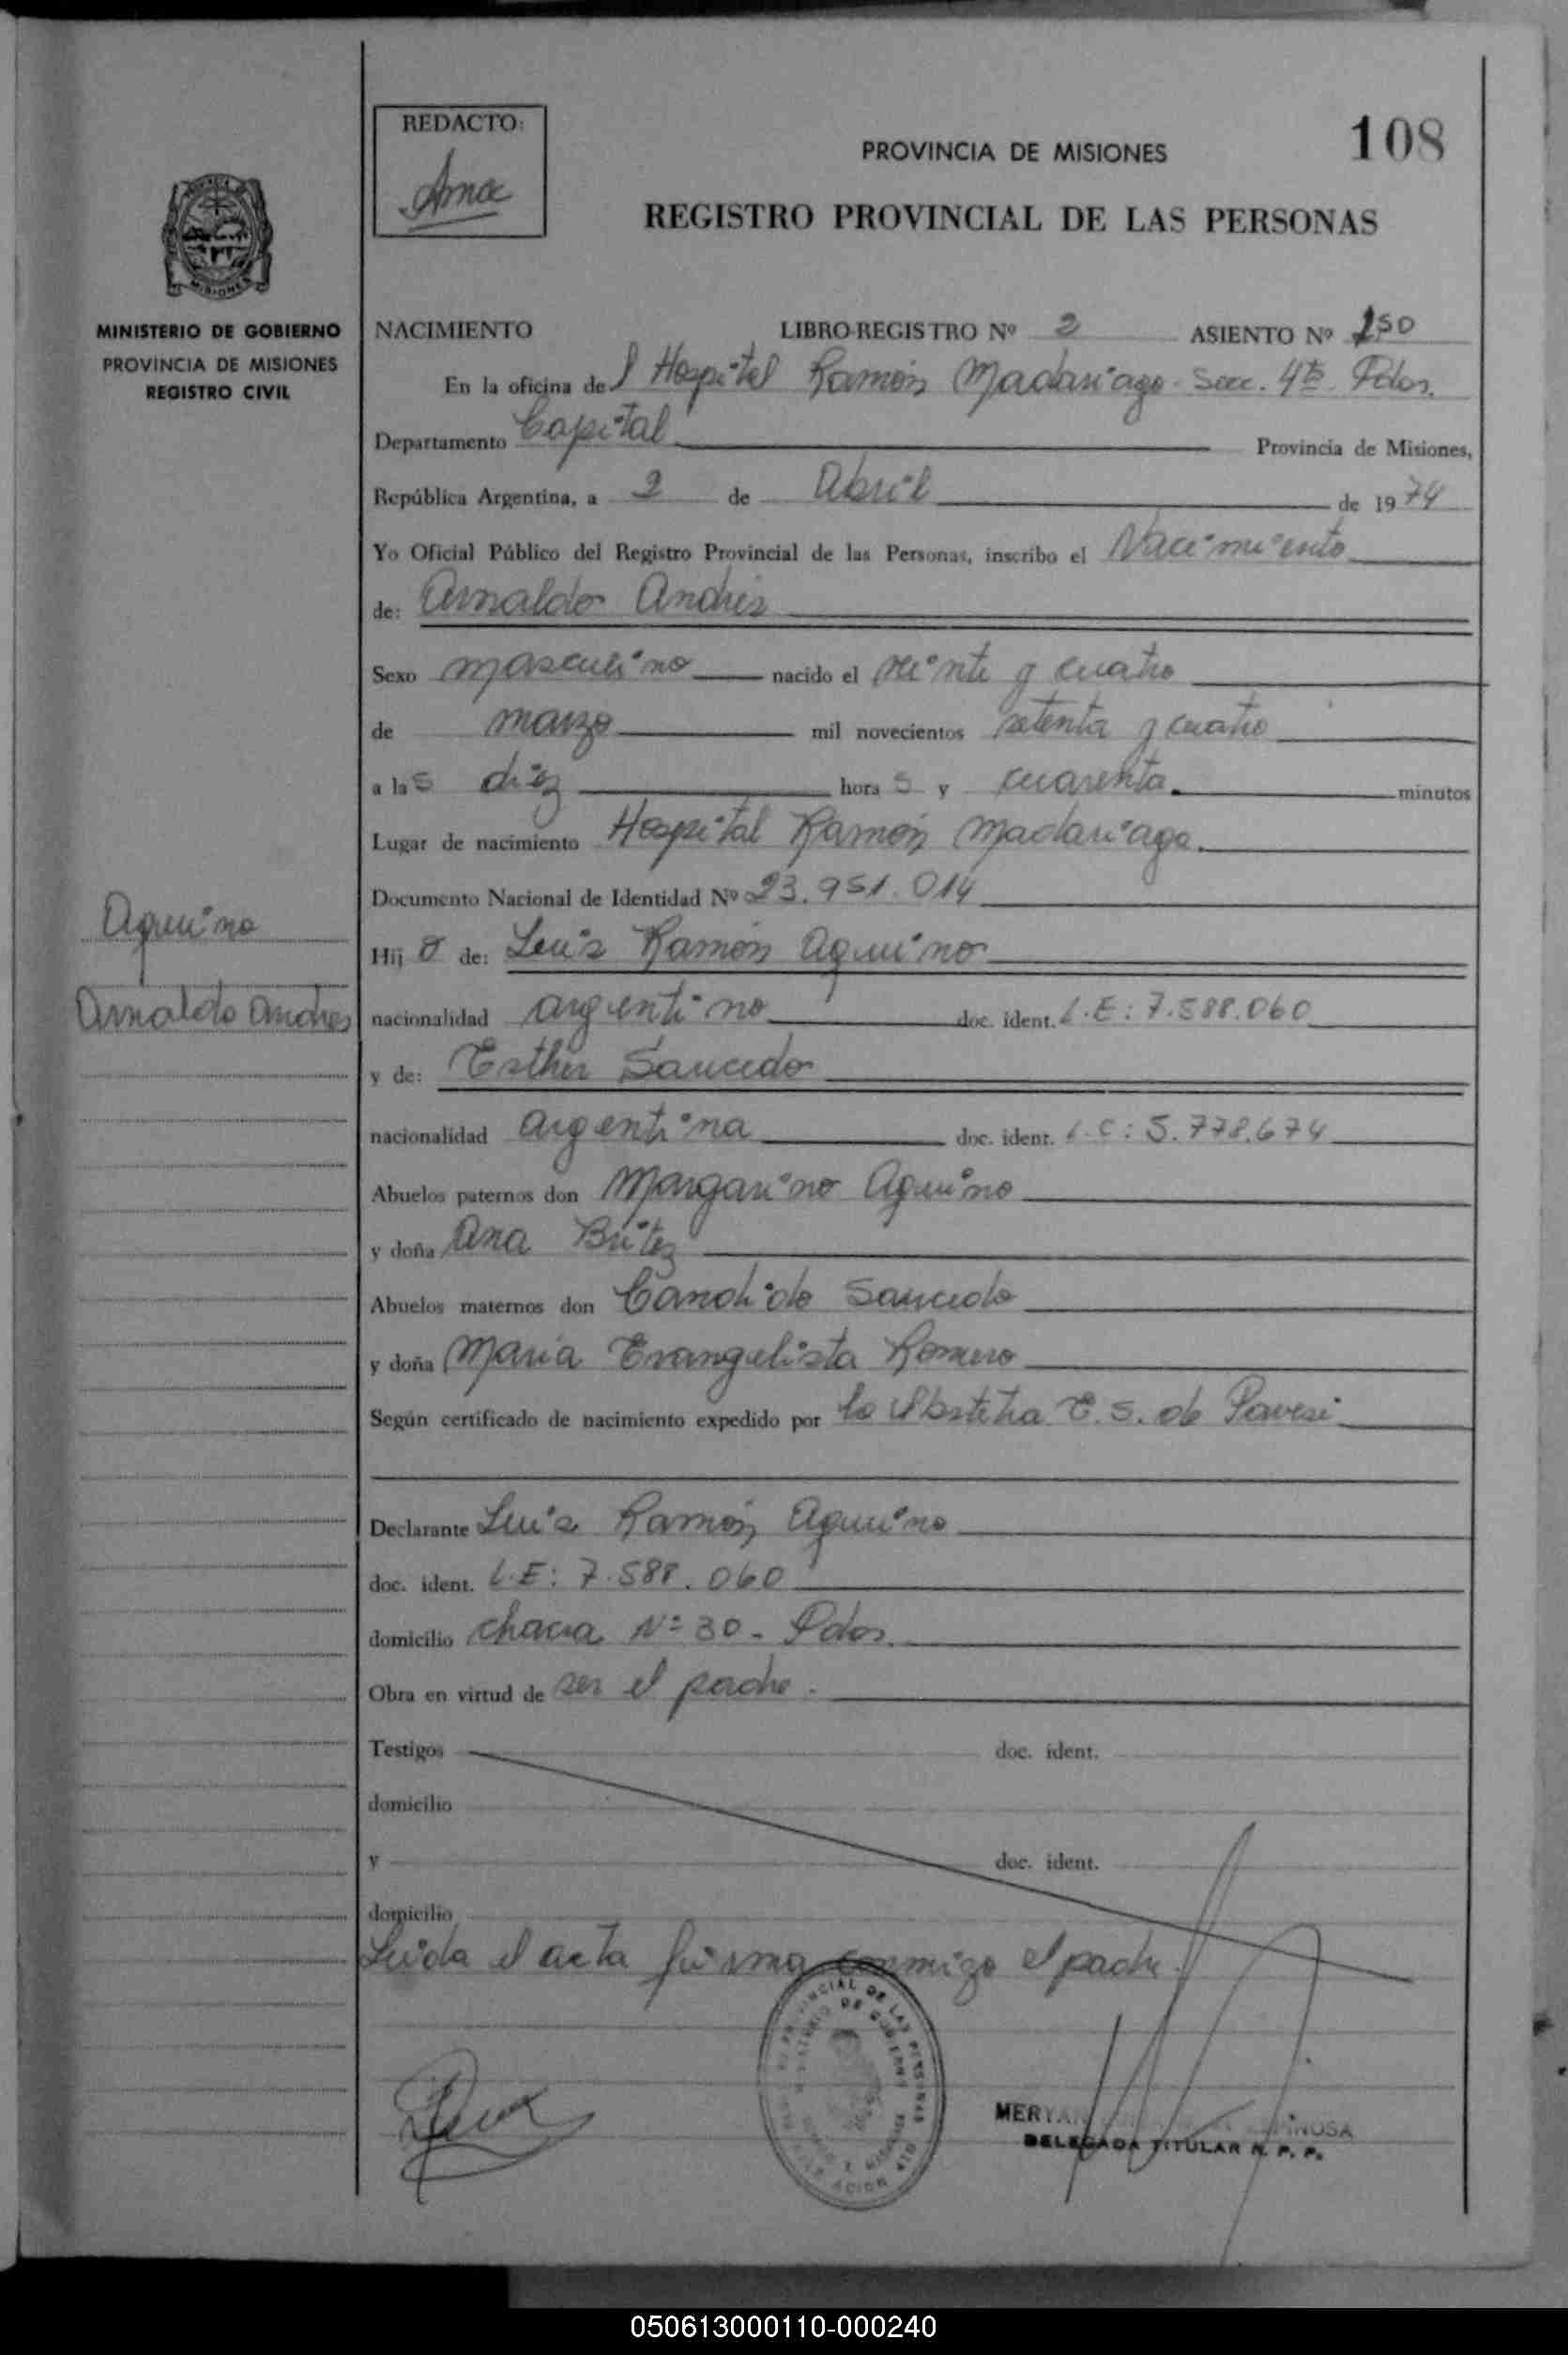 REDACTO:
108
PROVINCIA DE MISIONES
REGISTRO PROVINCIAL DE LAS PERSONAS
MINISTERIO DE GOBIERNO
PROVINCIA DE MISIONES
REGISTRO CIVIL
NACIMIENTO LIBRO-REGISTRO Nº 2 ASIENTO Nº 150
En la oficina del Hospital Ramón Madariaga - Secc. 4ta Pdas.
Departamento Capital Provincia de Misiones,
República Argentina, a 2 de Abril de 1974
Yo Oficial Público del Registro Provincial de las Personas, inscribo el Nacimiento
de: Arnaldo Andrés
Sexo masculino nacido el veinte y cuatro
de marzo mil novecientos setenta y cuatro
a las diez horas y cuarenta minutos
Lugar de nacimiento Hospital Ramón Madariaga.
Documento Nacional de Identidad Nº 23.951.014
Aquino
Hijo de: Luis Ramón Aquino
Arnaldo Andres
nacionalidad argentino doc. ident. L.E: 7.588.060
y de: Esther Saucedo
nacionalidad argentina doc. ident. L.C: 5.778.674
Abuelos paternos don Margarino Aquino
y doña Ana Britez
Abuelos maternos don Candido Saucedo
y doña Maria Evangelista Romero
Según certificado de nacimiento expedido por la Obstetra E. S. de Pavesi
Declarante Luis Ramón Aquino
doc. ident. L.E: 7.588.060
domicilio chacra Nº 30 - Pdas.
Obra en virtud de ser el padre.
Testigos doc. ident.
domicilio
y doc. ident.
domicilio
Leida el acta firma conmigo el padre.
DELEGADA TITULAR R. P. P.
050613000110-000240